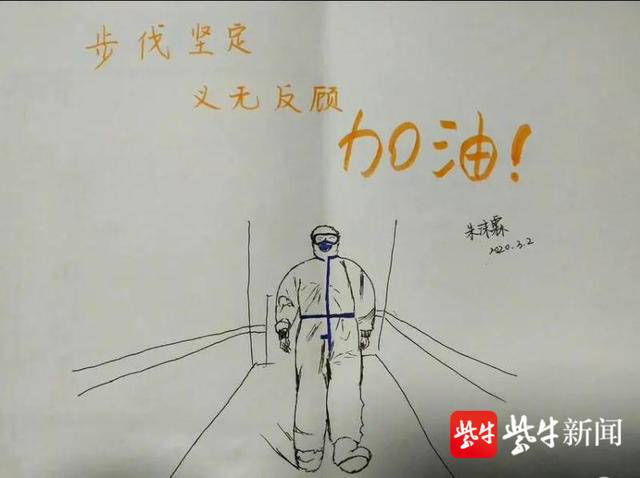 步伐坚定
义无反顾
加油!
朱沫霖
2020.3.2
紫牛 紫牛新闻